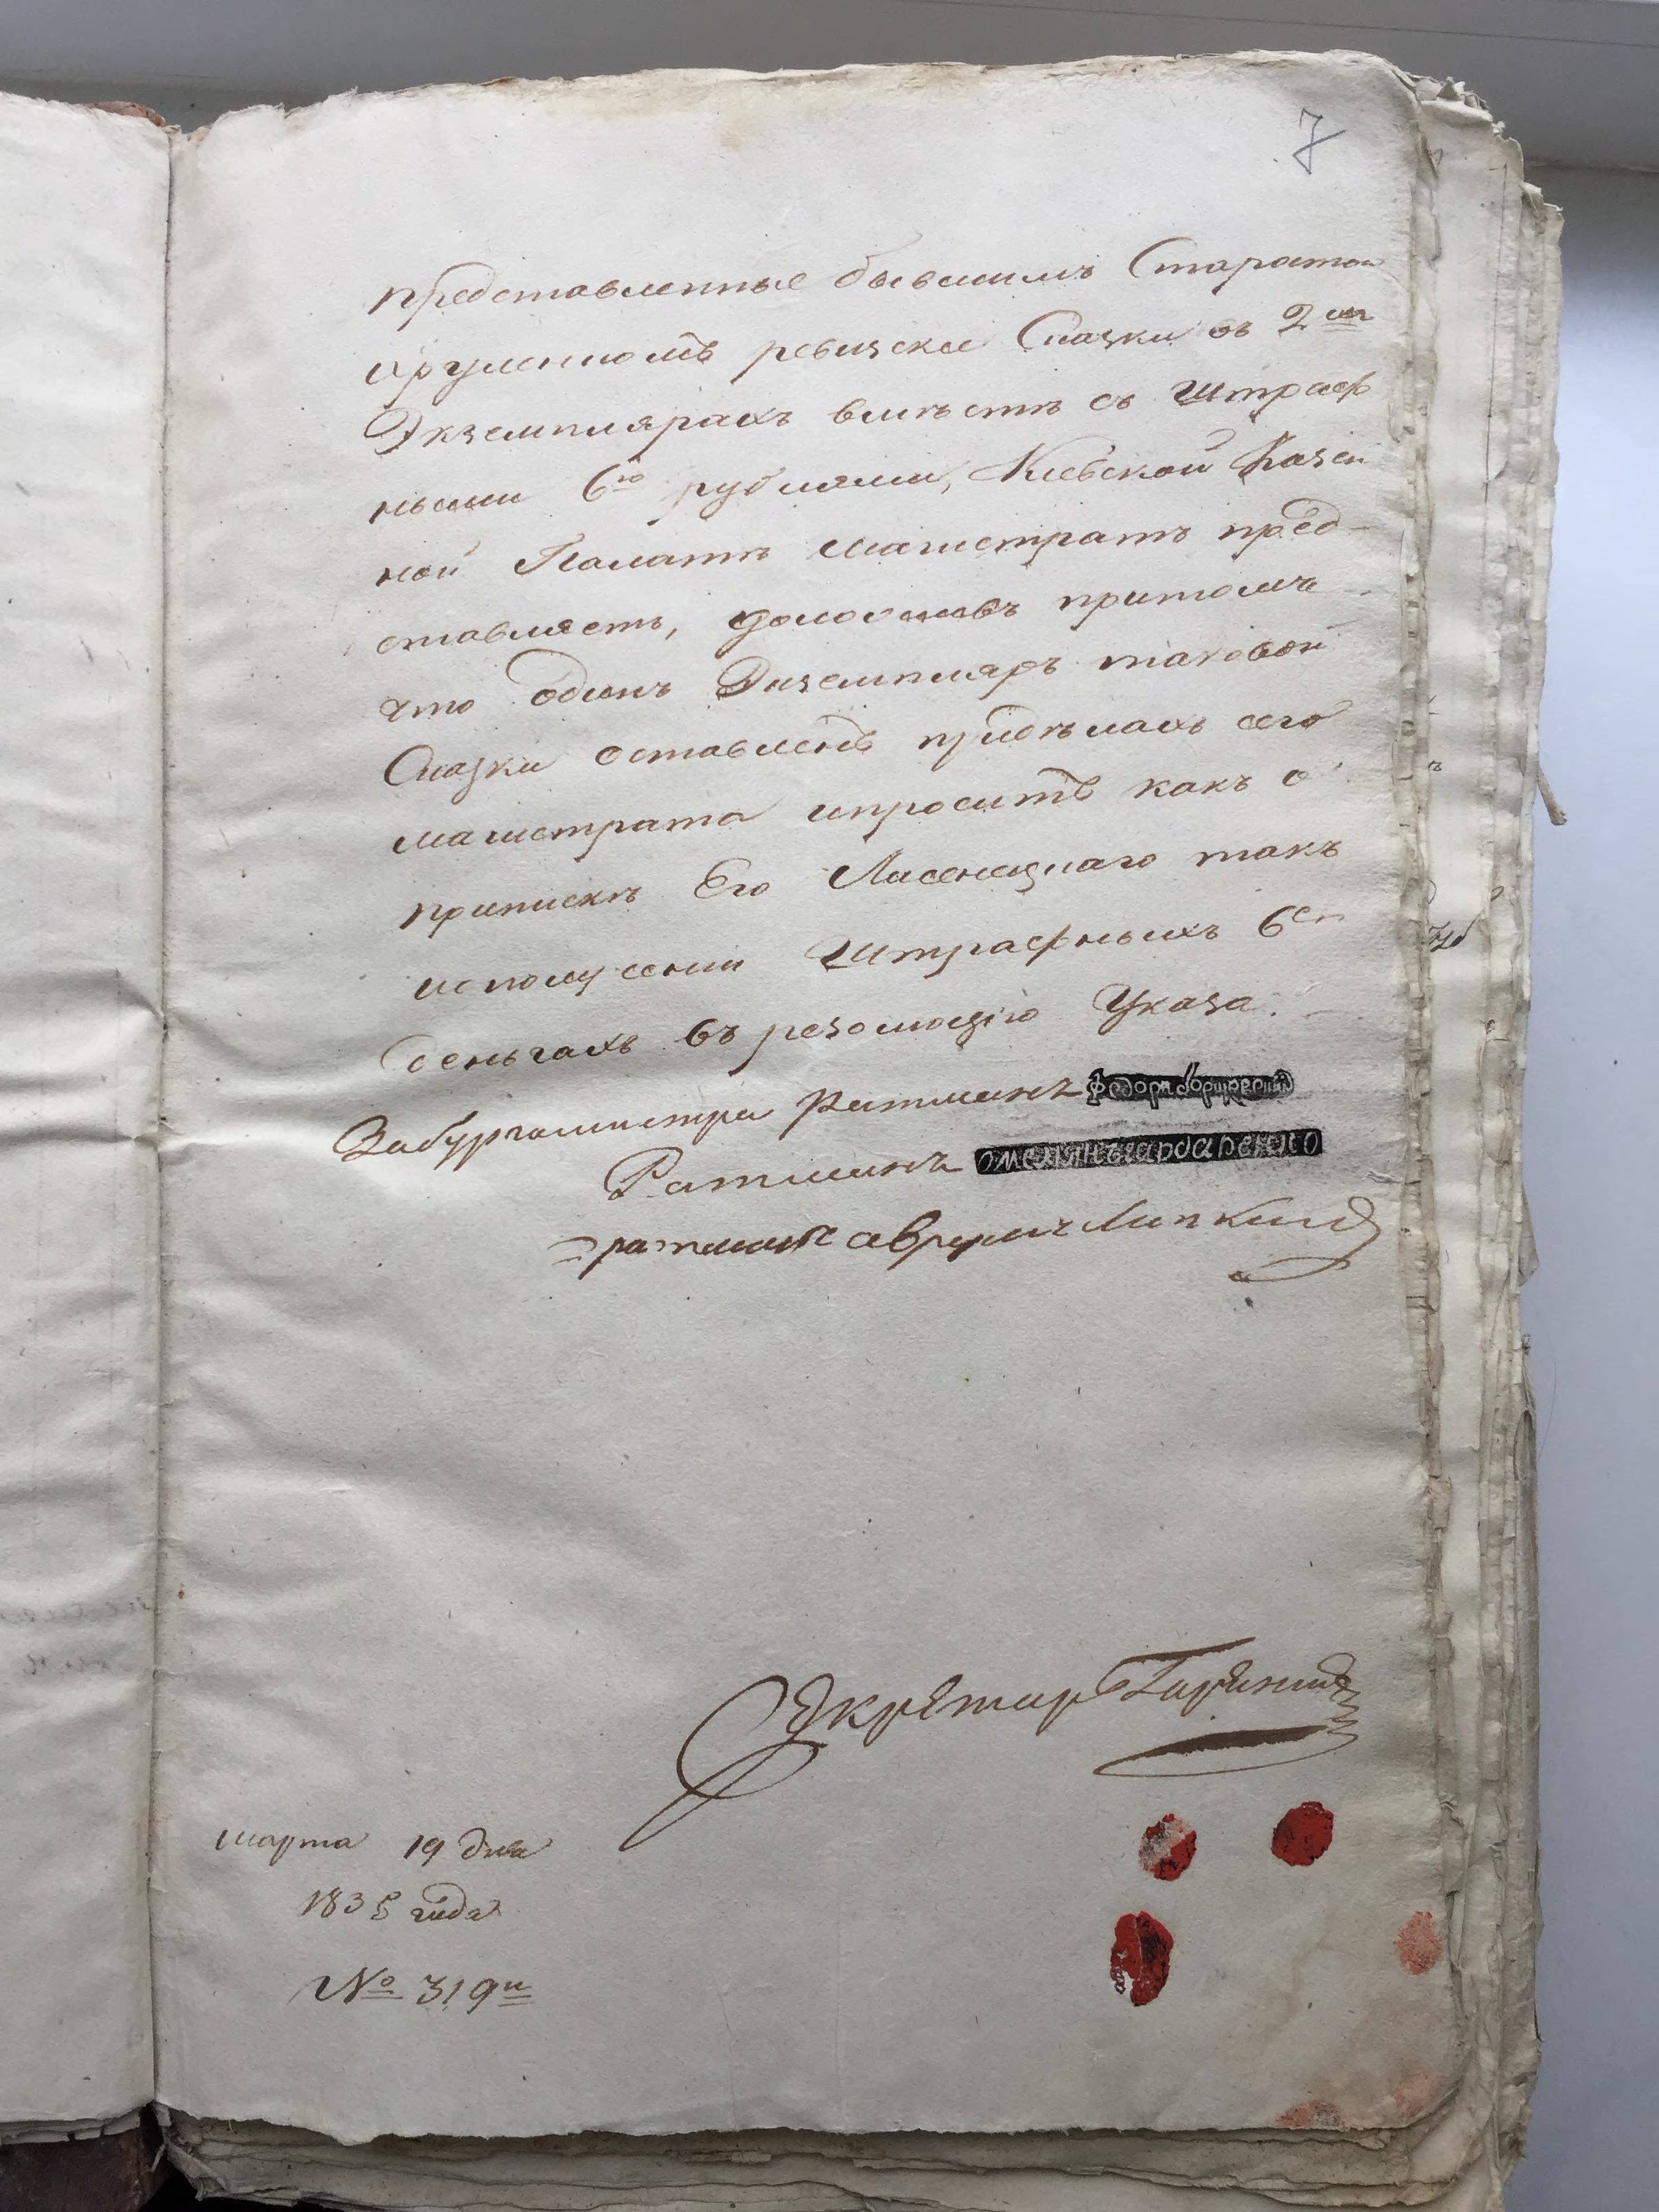 7
представленные бывшимъ Старостою
Экземплярахъ вместѣ съ штраф
ными 6ю рублями, Кіевской Казен
ной Палатѣ магистратъ пред-
ставляетъ, притомъ
что одинъ Экземпляръ таковой
Сказки оставленъ придѣлахъ сего
магистрата ипроситъ какъ о
припискѣ Его Лисенецкаго такъ
иополученіи Штрафныхъ 6ти
деньгахъ въ резолюцію Указа.
Забургомистра Ратманъ
Ратманъ омелянъ гарбаренко
ратманъ Липкинъ
Секретарь
марта 19 дня
1835 года
№ 319й